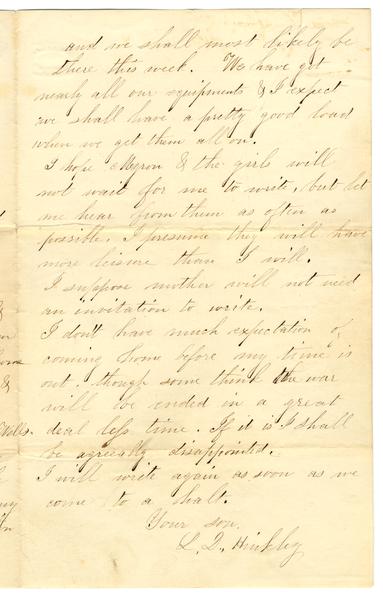 and we shall most likely be
there this week. We have got
nearly all our equipments & I expect
we shall have a pretty good load
when we get them all on.
I hope Myron & the girls will
not wait for me to write, but let
me hear from them as often as
possible. I presume they will have
more leisure than I will.
I suppose mother will not need
an invitation to write.
I don't have much expectation of
coming home before my time is
out. though some think the war
will be ended in a great
deal less time. If it is I shall
be agreeably disappointed.
I will write again as soon as we
come to a halt.
Your son,
L. Q. Hinkley